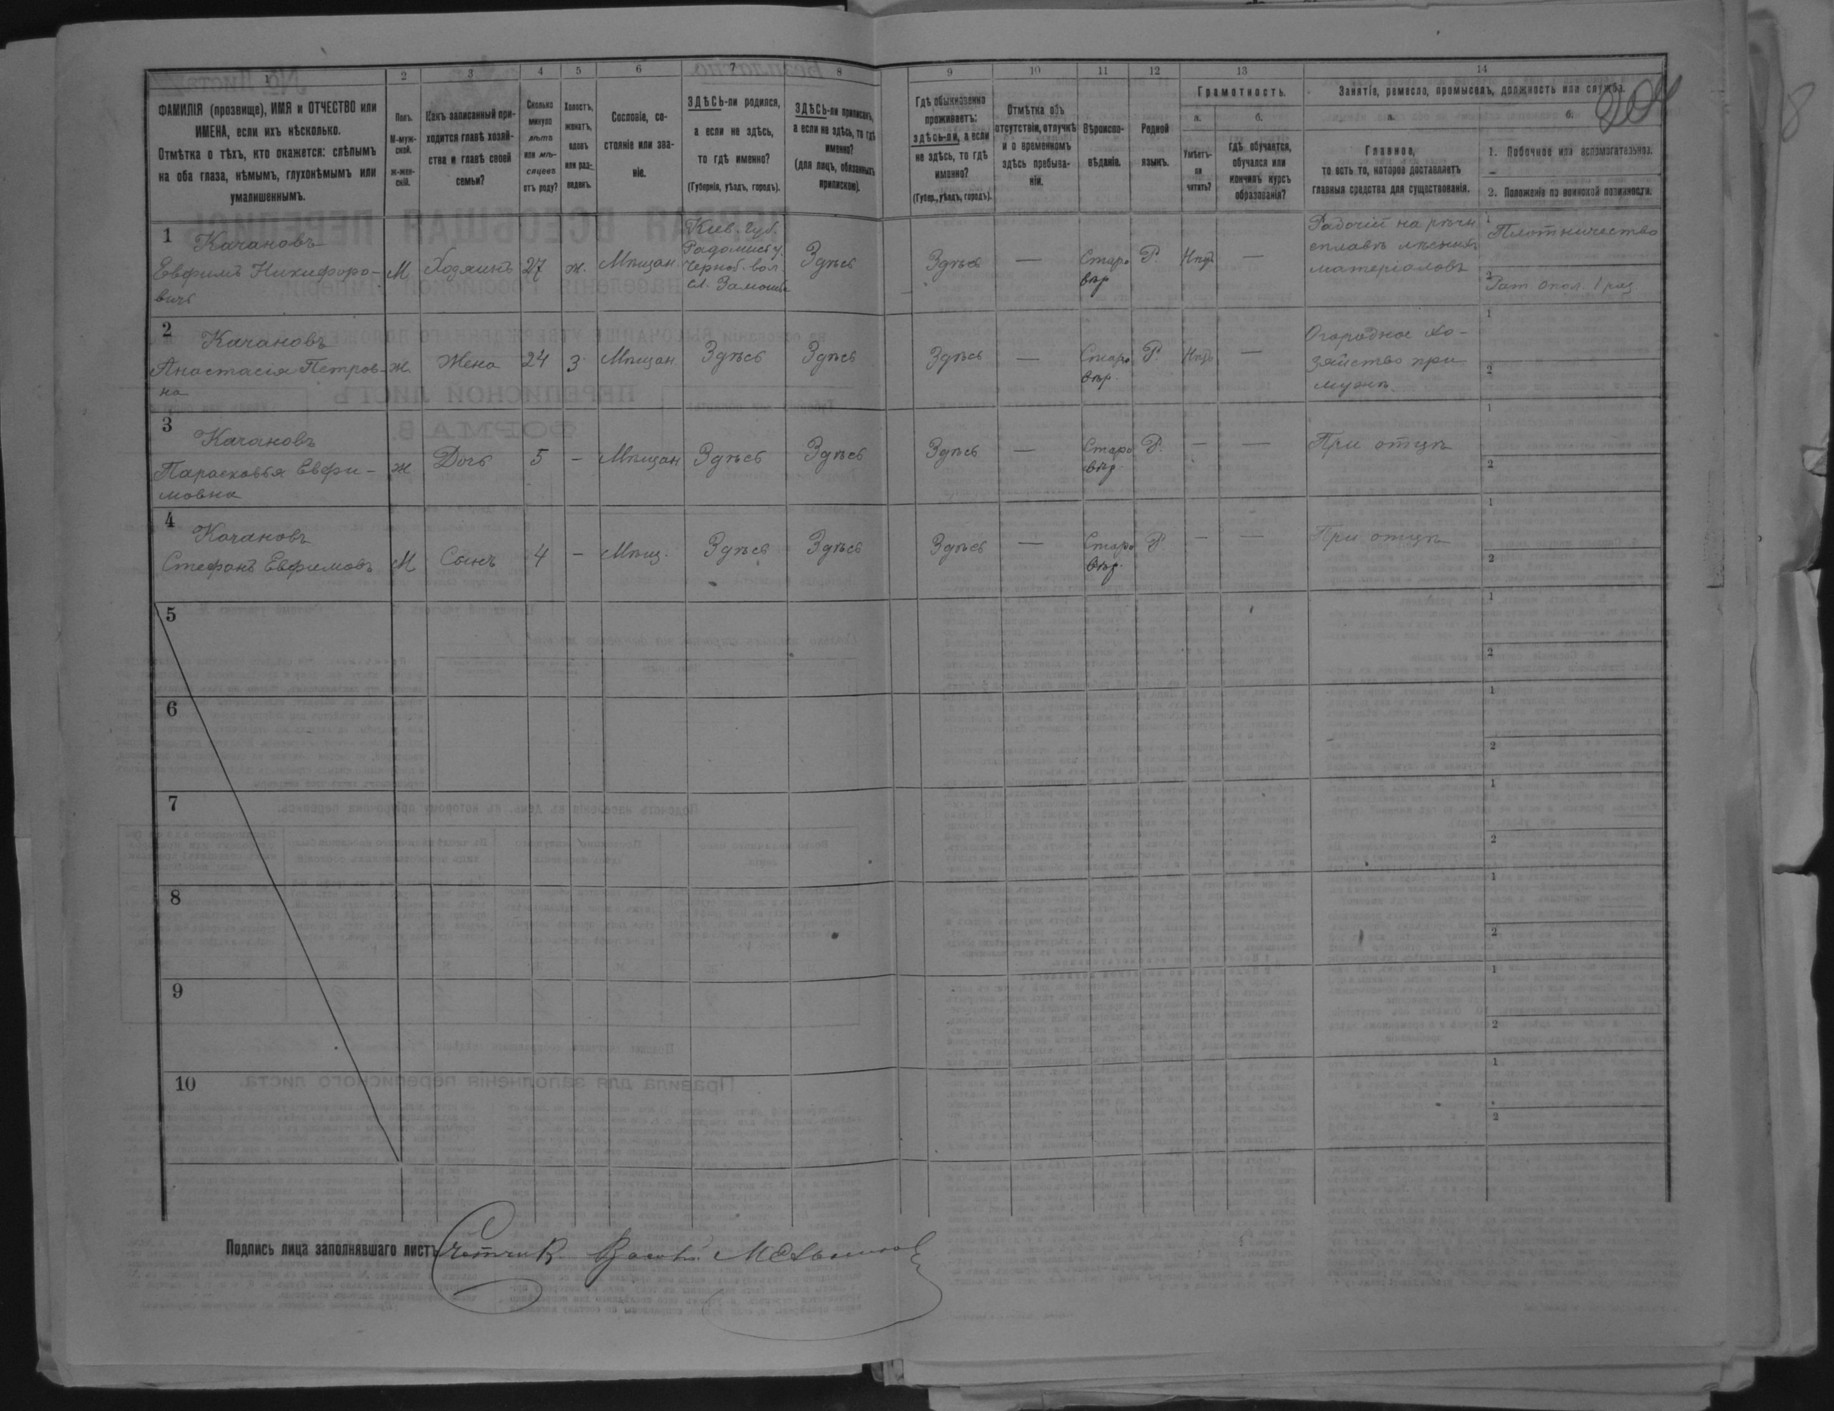 204
1 2 3 4 5 6 7 8 9 10 11 12 13 14
ФАМИЛІЯ (прозвище), ИМЯ и ОТЧЕСТВО или
ИМЕНА, если ихъ нѣсколько.
Отмѣтка о тѣхъ, кто окажется: слѣпымъ
на оба глаза, нѣмымъ, глухонѣмымъ или
умалишеннымъ.
Полъ.
М-муж-
ской.
Ж-жен-
скій.
Какъ записанный при-
ходится главѣ хозяй-
ства и главѣ своей
семьи?
Сколько
минуло
лѣтъ
или мѣ-
сяцевъ
отъ роду?
Холостъ,
женатъ,
вдовъ
или раз-
веденъ.
Сословіе, со-
стояніе или зва-
ніе.
ЗДѢСЬ-ли родился,
а если не здѣсь,
то гдѣ именно?
(Губернія, уѣздъ, городъ).
ЗДѢСЬ-ли приписанъ,
а если не здѣсь, то гдѣ
именно?
(для лицъ, обязанныхъ
припиской).
Гдѣ обыкновенно
проживаетъ:
здѣсь-ли, а если
не здѣсь, то гдѣ
именно?
(Губер., уѣздъ, городъ).
Отмѣтка объ
отсутствіи, отлучкѣ
и о временномъ
здѣсь пребыва-
ніи.
Вѣроиспо-
вѣданіе.
Родной
языкъ.
Грамотность.
а.
Умѣетъ-
ли
читать?
б.
Гдѣ обучается,
обучался или
кончилъ курсъ
образованія?
Занятіе, ремесло, промыселъ, должность или служба.
а.
Главное,
то есть то, которое доставляетъ
главныя средства для существованія.
б.
1. Побочное или вспомогательное.
2. Положеніе по воинской повинности.
1 Качановъ
Евфимъ Никифоро-
вичъ
М
Хозяинъ
27
ж.
Мѣщан
Кіев. губ.
Радомысл у.
Черноб. вол.
сл. Замошня
Здѣсь
Здѣсь
—
Старо
вѣр
Р.
Нѣтъ
—
Рабочій на рѣчн
сплавѣ лѣсныхъ
матеріаловъ
1 Плотничество
2 Рат опол. 1 раз
2 Качановъ
Анастасія Петров-
на
Ж
Жена
24
З
Мѣщан
Здѣсь
Здѣсь
Здѣсь
—
Старо
вѣр.
Р
Нѣтъ
—
Огородное хо-
зяйство при
мужѣ
1
2
3 Качановъ
Парасковья Евфи-
мовна
ж
Дочь
5
–
Мѣщан
Здѣсь
Здѣсь
Здѣсь
—
Старо
вѣр
Р.
—
—
При отцѣ
1
2
4 Качановъ
Стефанъ Евфимовъ
М
Сынъ
4
–
Мѣщ.
Здѣсь
Здѣсь
Здѣсь
—
Старо
вѣр.
Р
—
—
При отцѣ
1
2
5
1
2
6
1
2
7
1
2
8
1
2
9
1
2
10
1
2
Подпись лица заполнявшаго листъ Счетчик